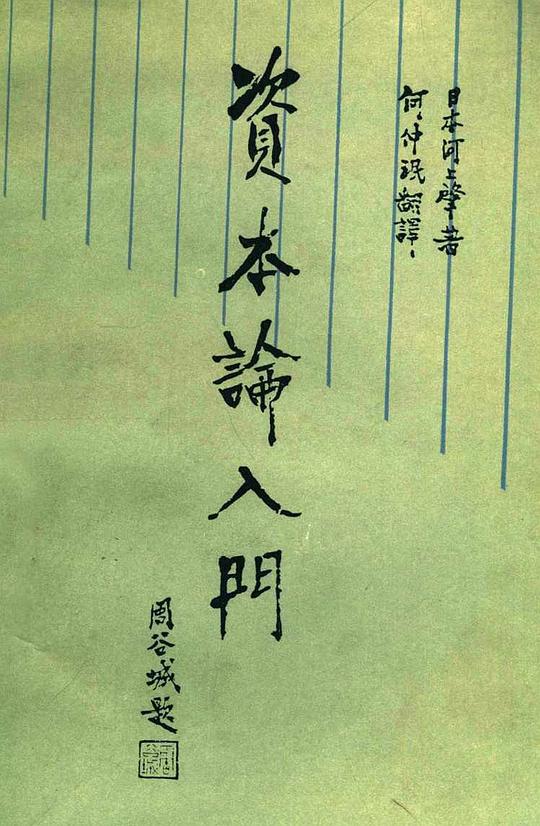 日本河上肇著
何仲珉翻譯、
資本論入門
周谷城題